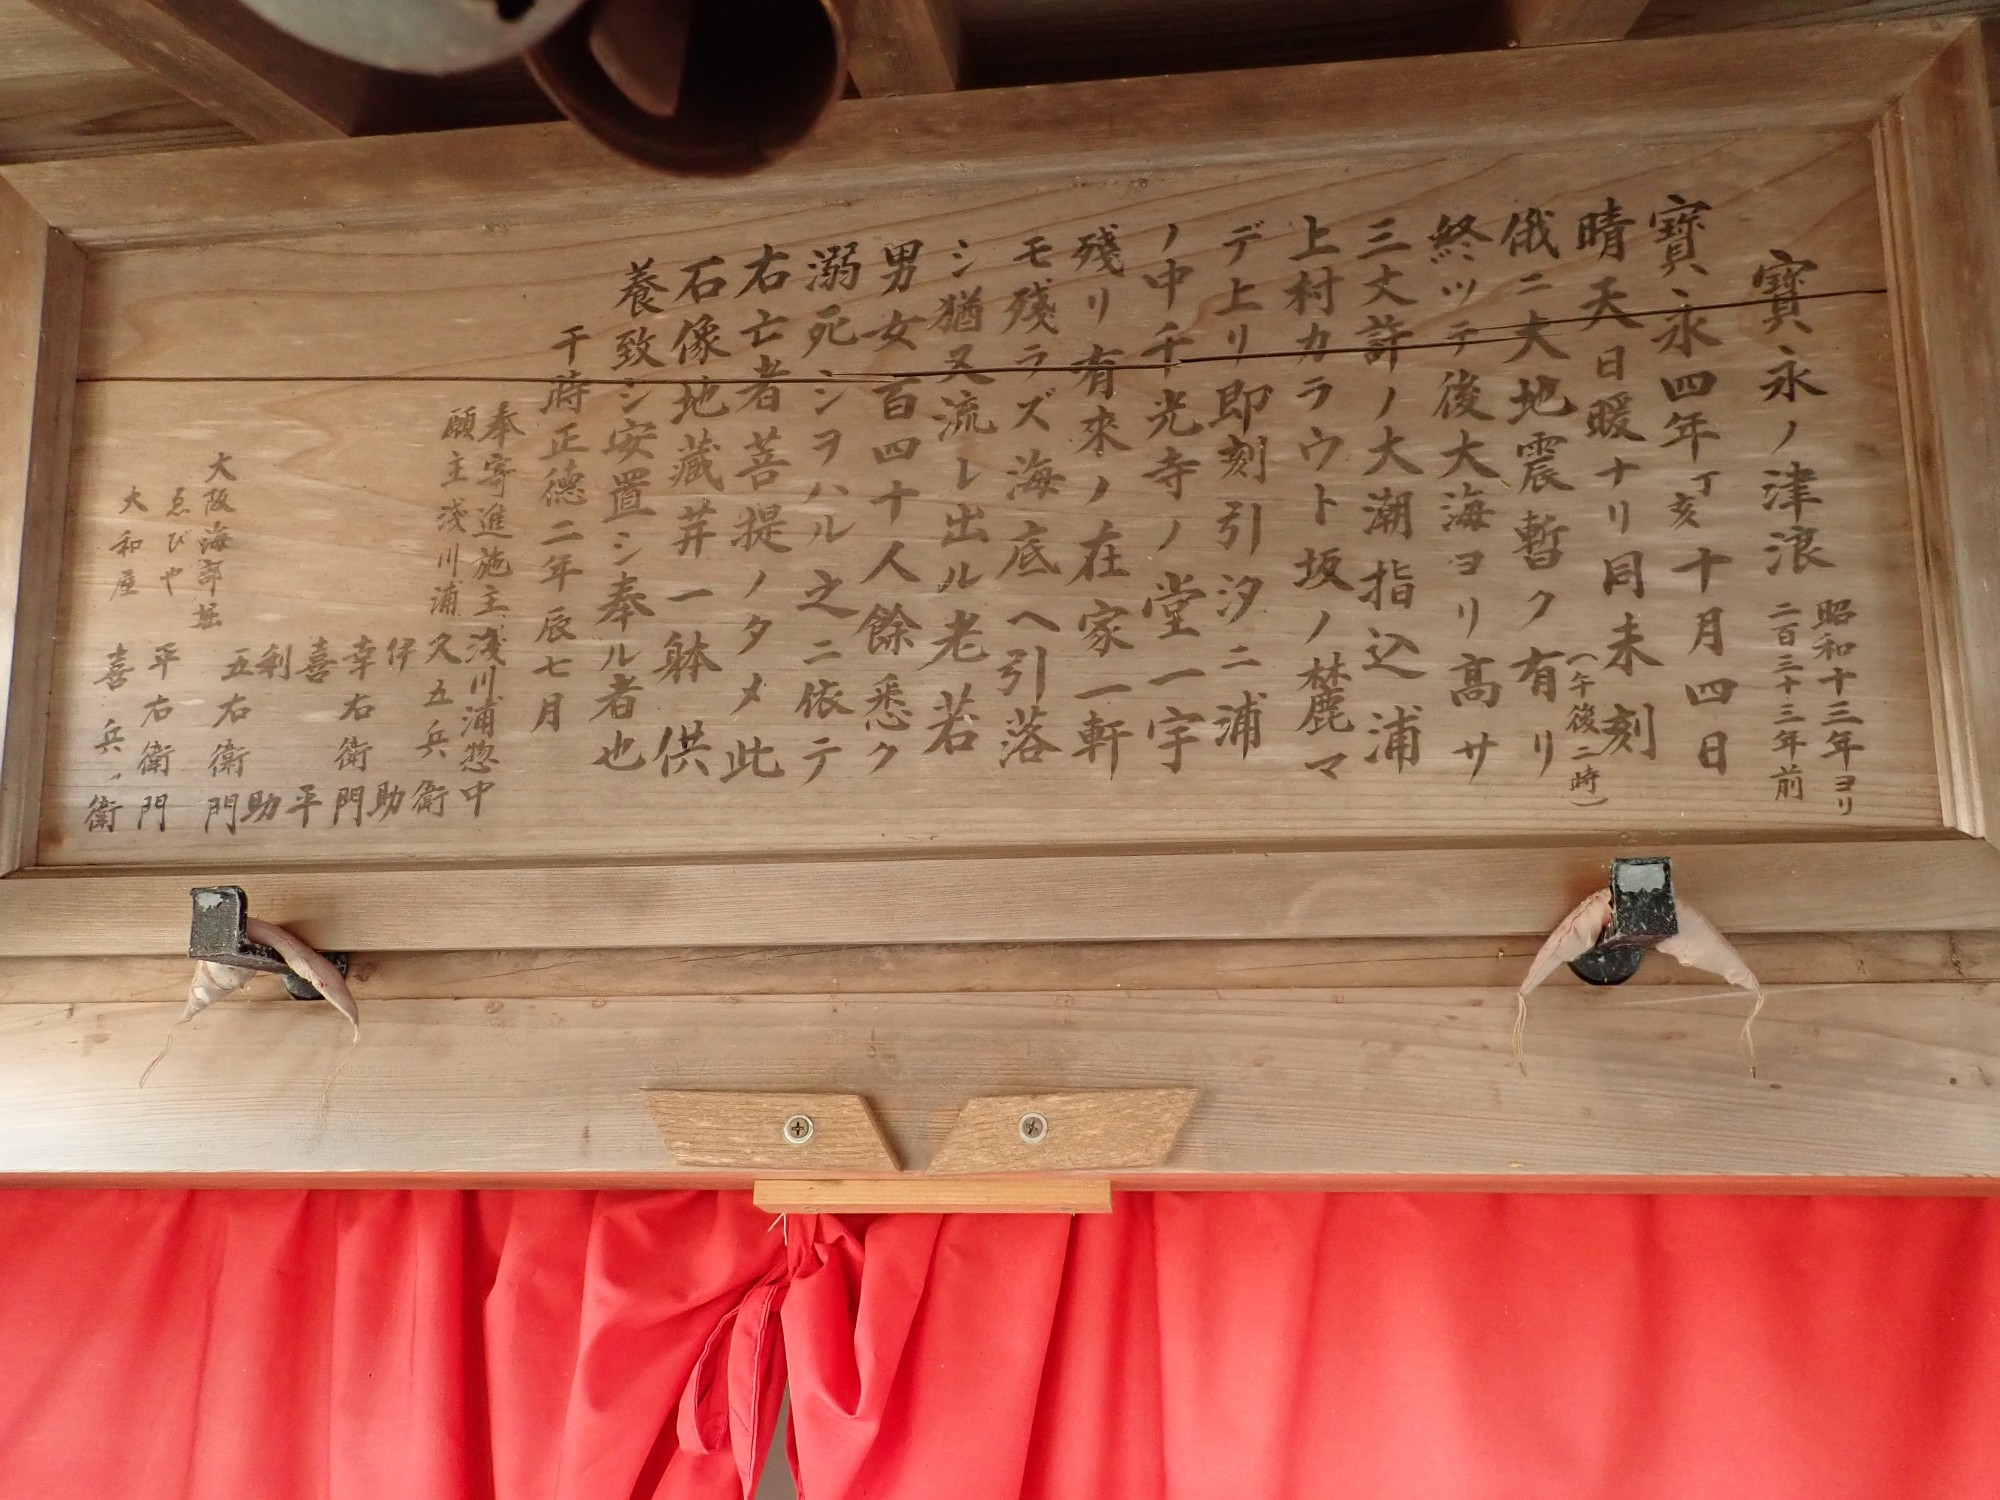 寶永ノ津浪
昭和十三年ヨリ
二百三十三年前
寶永四年丁亥十月四日
晴天日暖ナリ同未刻
(午後二時)
俄ニ大地震暫ク有リ
終ツテ後大海ヨリ高サ
三丈許ノ大潮指込浦
上村カラウト坂ノ麓マ
デ上リ即刻引汐ニ浦
ノ中千光寺ノ堂一宇
殘リ有來ノ在家一軒
モ殘ラズ海底ヘ引落
シ猶又流レ出ル老若
男女百四十人餘悉ク
溺死シヲハル之ニ依テ
右亡者菩提ノタメ此
石像地藏菩一躰供
養致シ安置シ奉ル者也
干蒔正德二年辰七月
奉寄進施主浅川浦惣中
願主浅川浦久五兵衛
伊助
幸右衛門
喜平
利助
大阪海部堀五右衛門
ゑびや平右衛門
大和屋喜兵衛